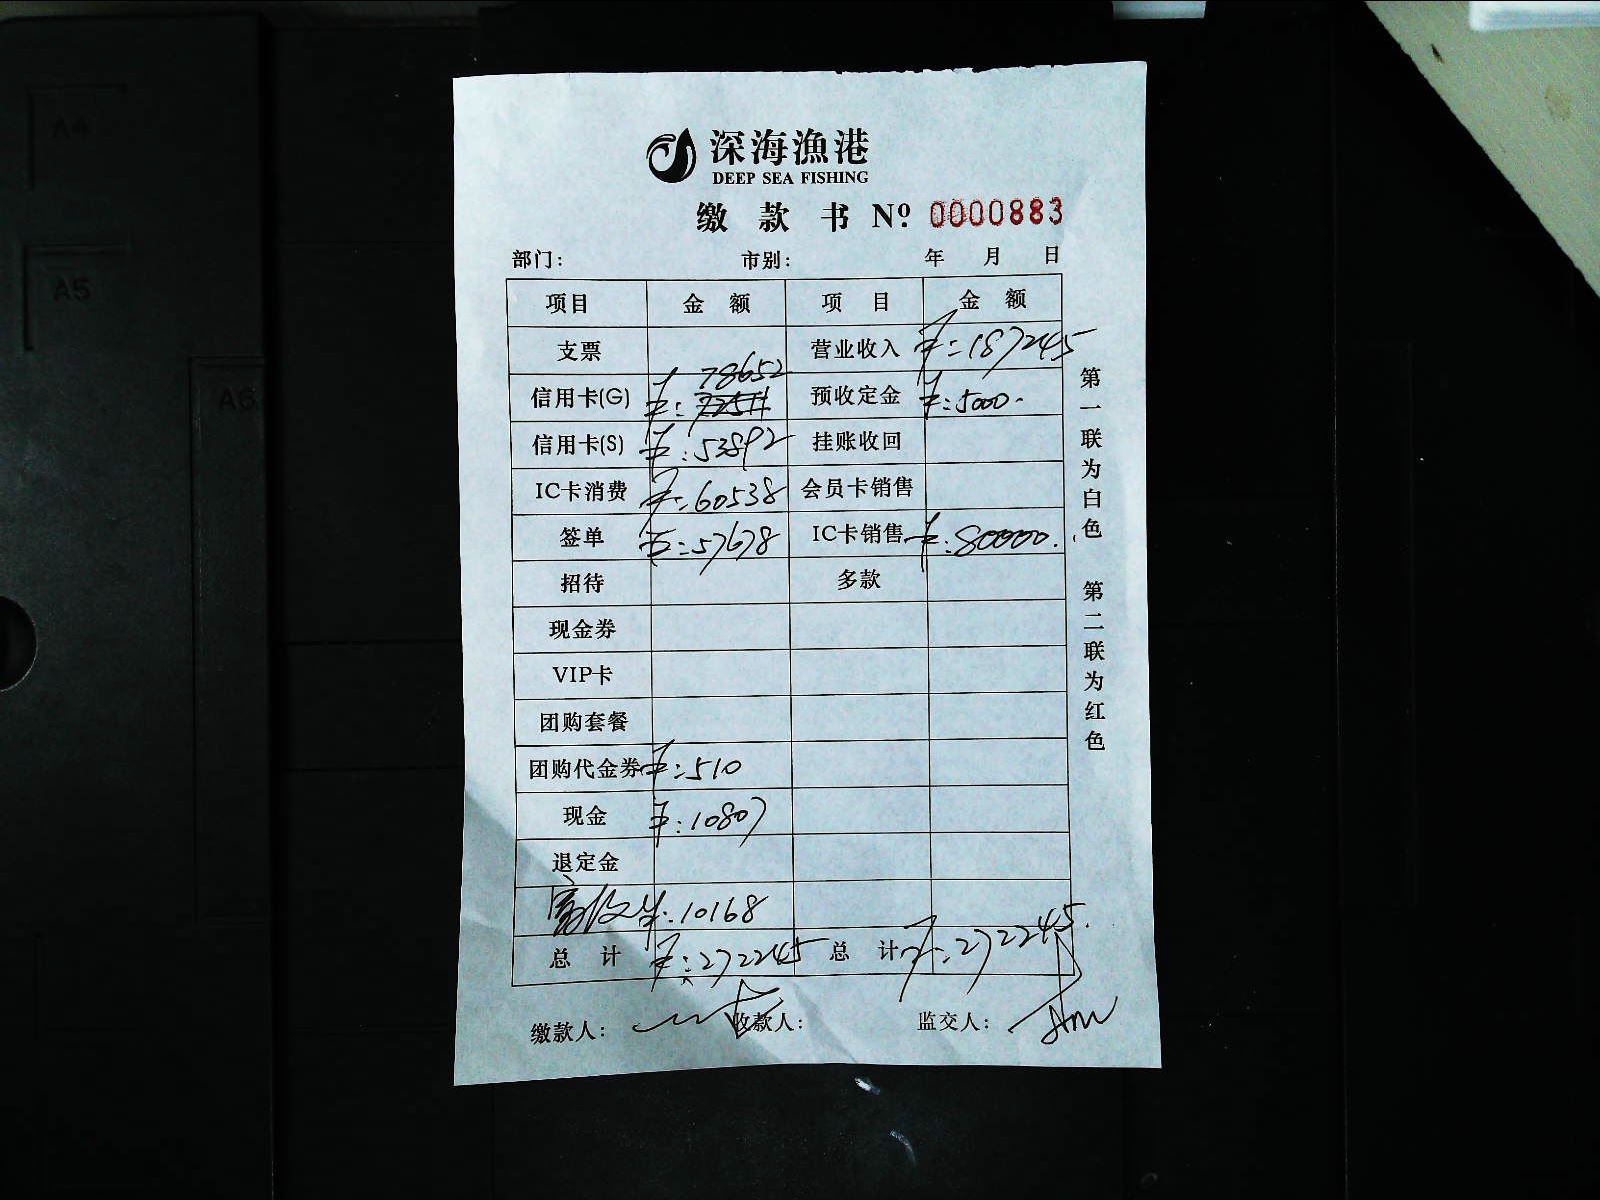 A4
A5
A6
深海漁港
DEEP SEA FISHING
缴款书 Nº 0000883
部门： 市别： 年 月 日
项目 金额 项目 金额
支票 营业收入 ¥:187245
信用卡(G) ¥: 78652 预收定金 ¥:5000.
信用卡(S) ¥:53892 挂账收回
IC卡消费 ¥:60538 会员卡销售
签单 ¥:57678 IC卡销售 ¥:80000.
招待 多款
现金券
VIP卡
团购套餐
团购代金券 ¥:510
现金 ¥:10807
退定金
¥:10168
总计 ¥:272245 总计 ¥:272245.
缴款人： 收款人： 监交人：
第一联为白色 第二联为红色